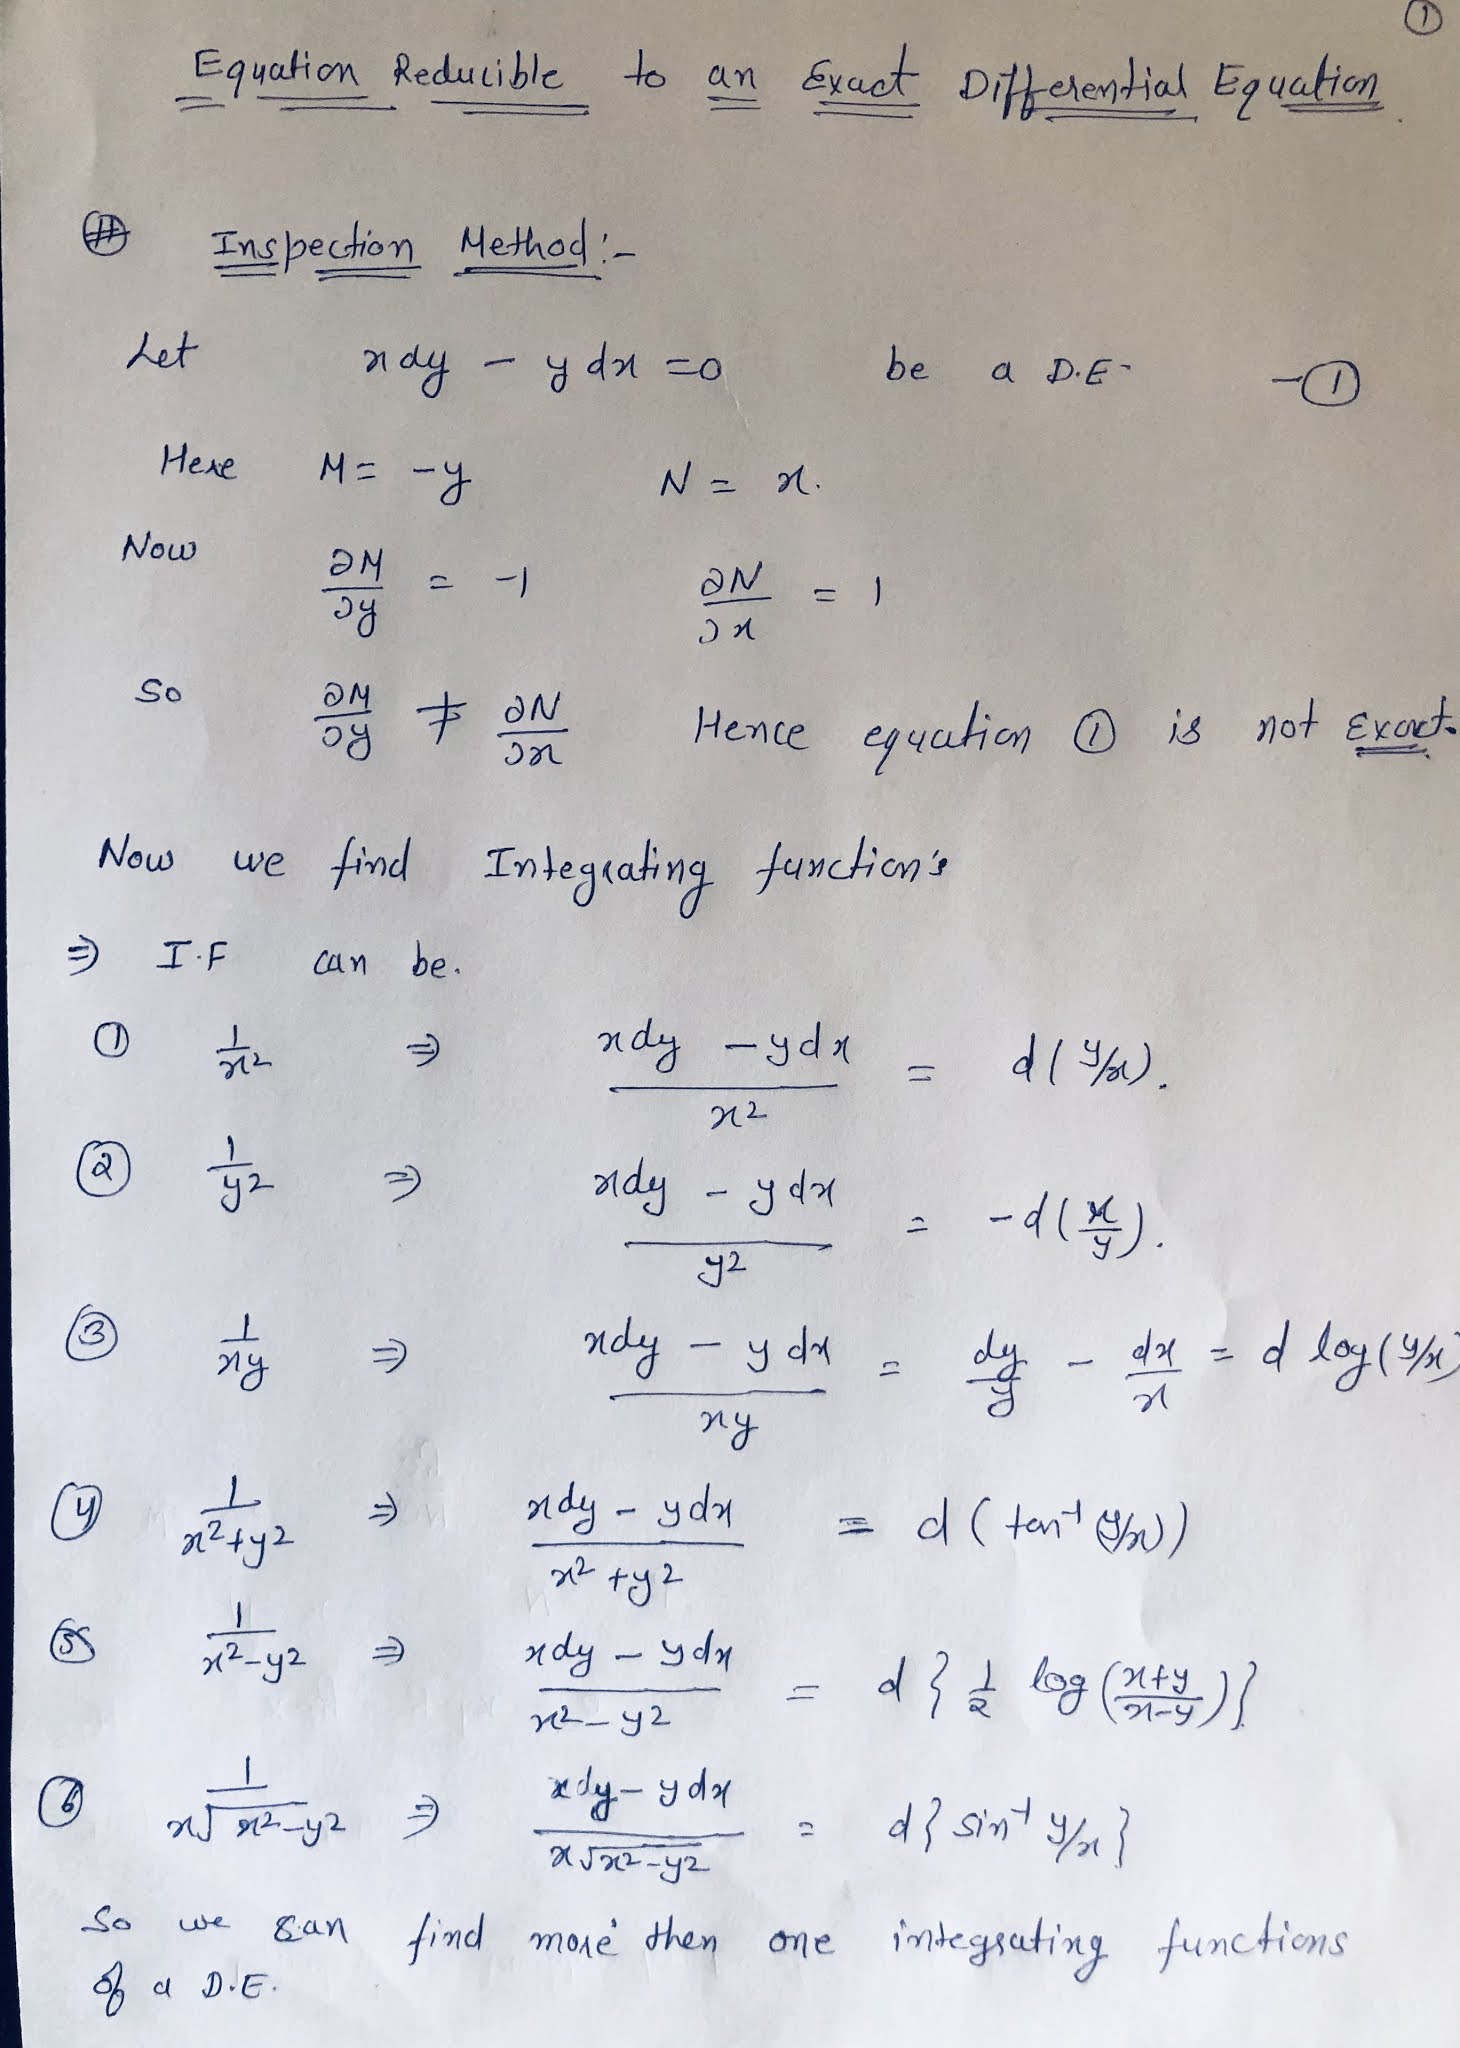 ①
Equation Reducible to an Exact Differential Equation.
# Inspection Method :-
Let xdy - ydx = 0 be a D.E - ①
Here M = -y N = x.
Now ∂M/∂y = -1 ∂N/∂x = 1
So ∂M/∂y ≠ ∂N/∂x Hence equation ① is not Exact.
Now we find Integrating function's
⇒ I.F can be.
① 1/x² ⇒ (xdy - ydx)/x² = d(y/x).
② 1/y² ⇒ (xdy - ydx)/y² = -d(x/y).
③ 1/xy ⇒ (xdy - ydx)/xy = dy/y - dx/x = d log(y/x)
④ 1/(x²+y²) ⇒ (xdy - ydx)/(x²+y²) = d(tan⁻¹(y/x))
⑤ 1/(x²-y²) ⇒ (xdy - ydx)/(x²-y²) = d{1/2 log((x+y)/(x-y))}
⑥ 1/(x√(x²-y²)) ⇒ (xdy - ydx)/(x√(x²-y²)) = d{sin⁻¹ y/x}
So we can find more then one integrating functions
of a D.E.